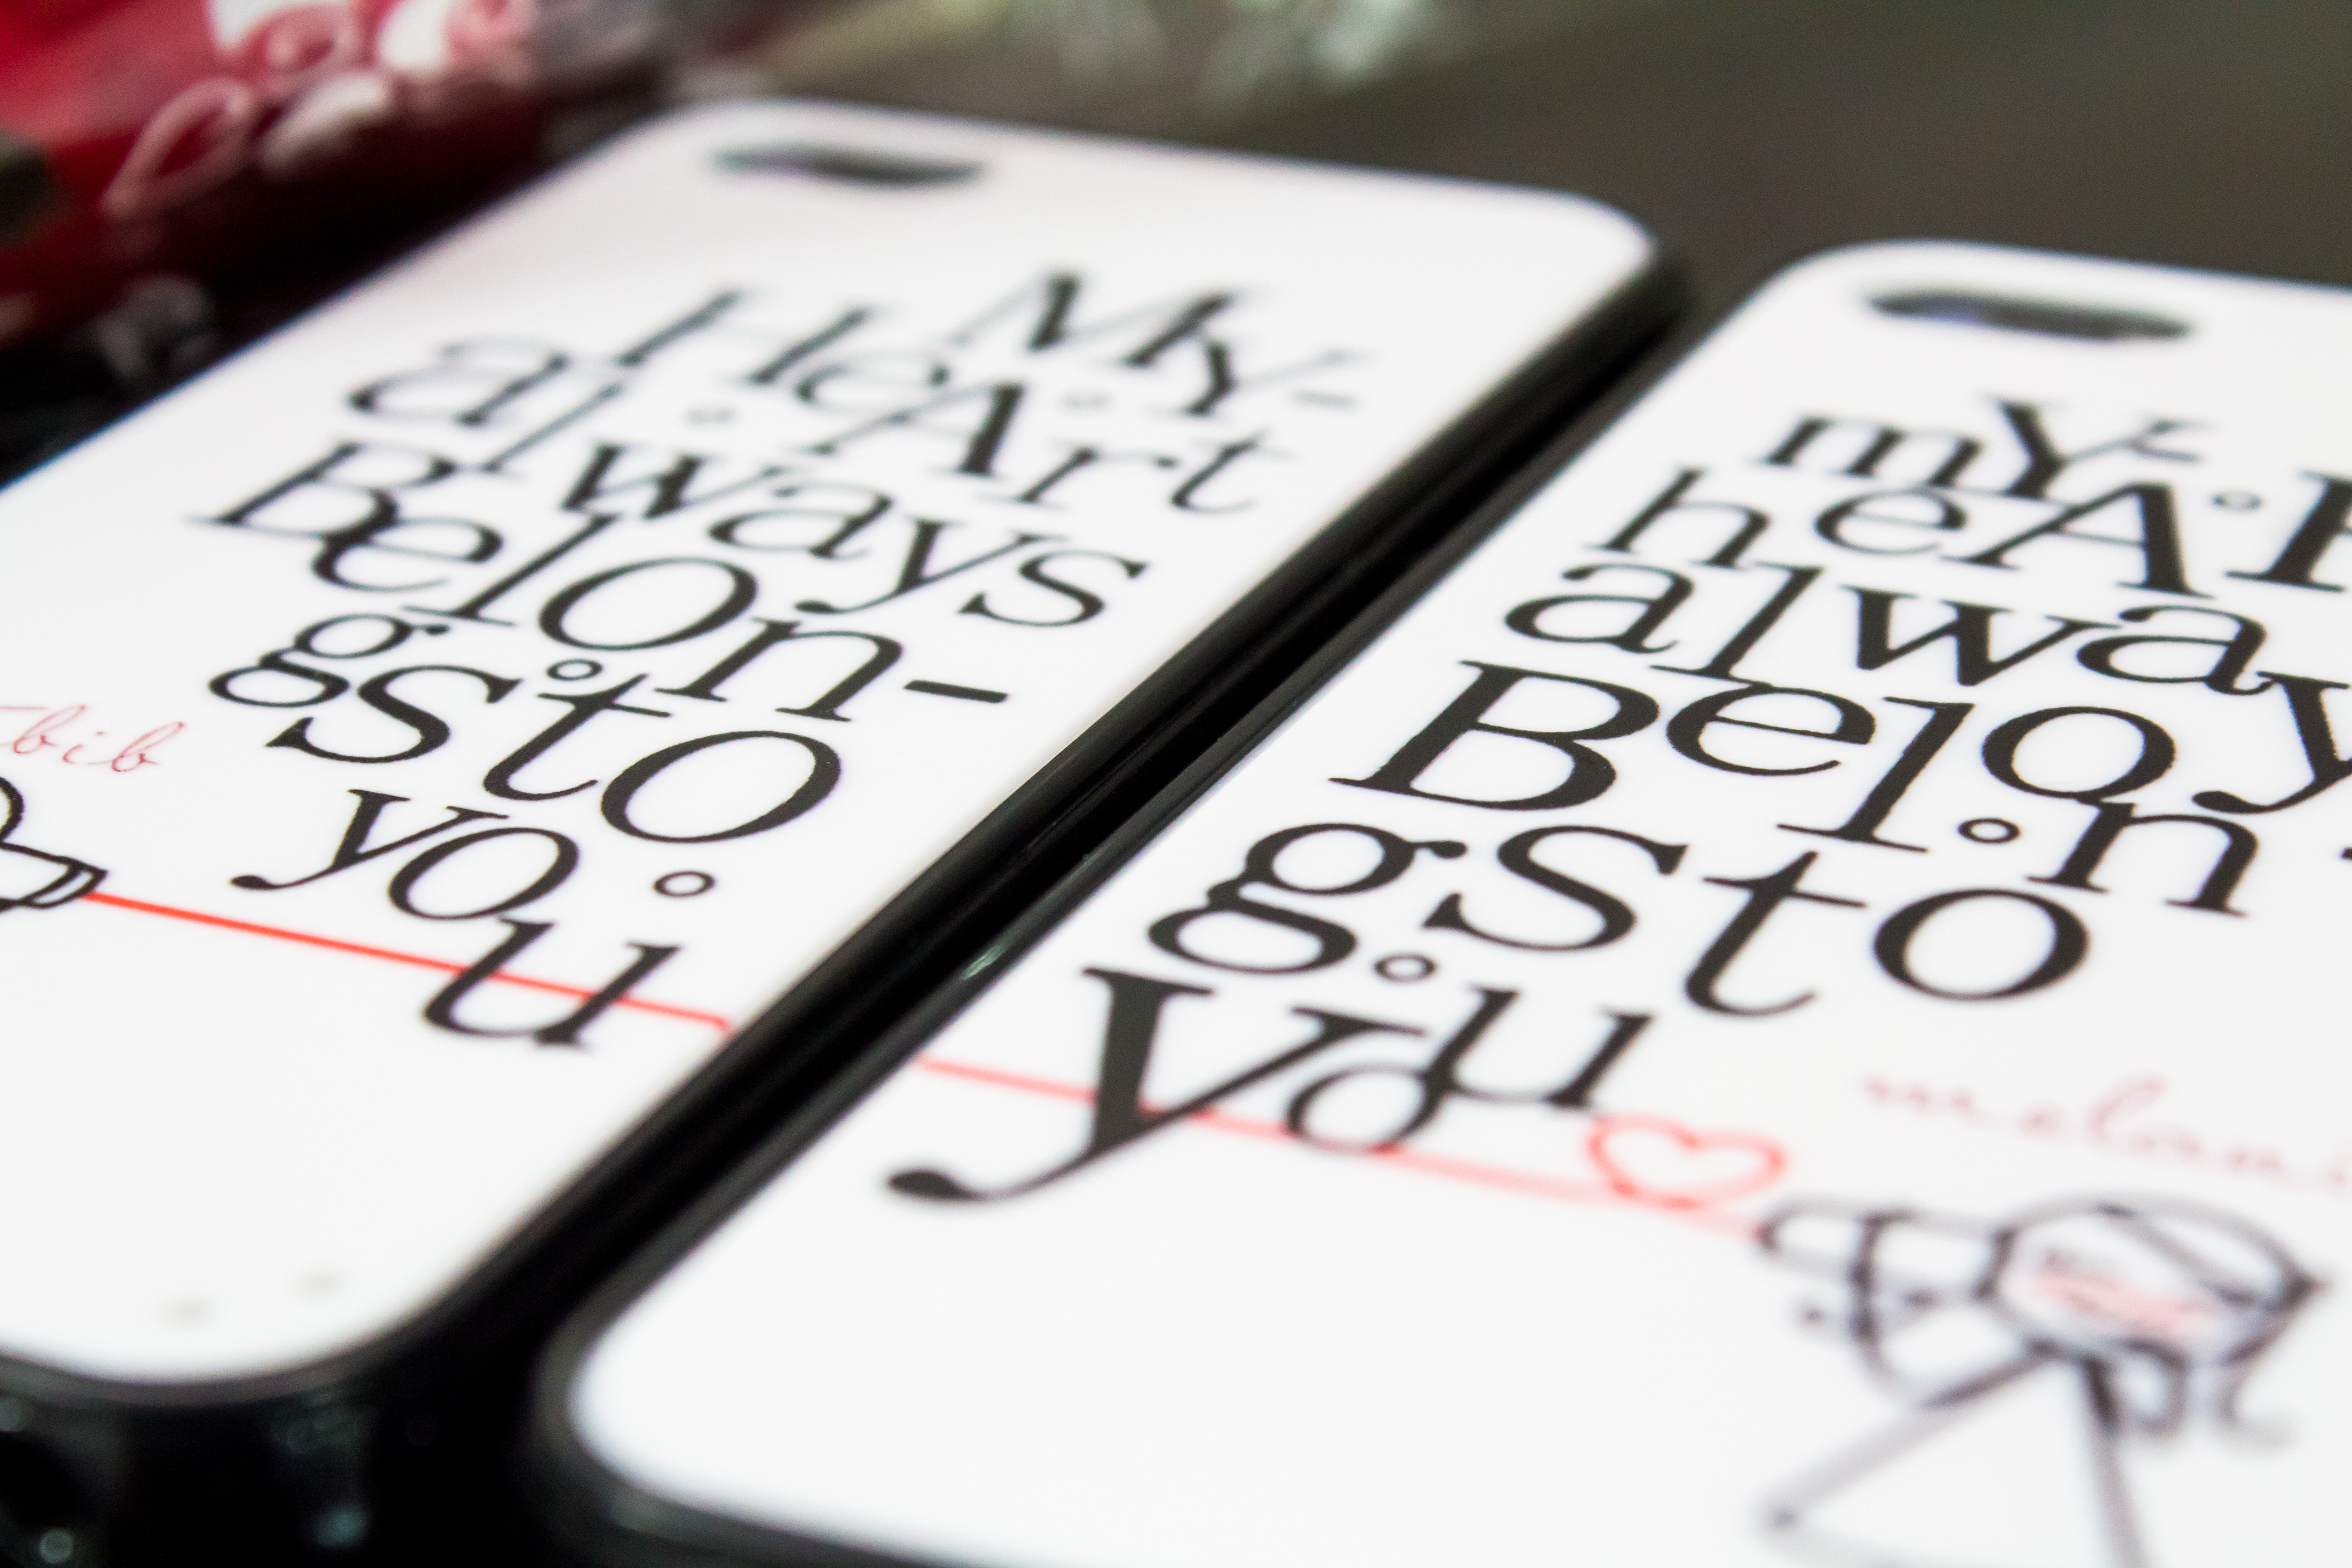 My-
HeArt
always
Belon-
gSto
yo
u
bib
mY-
heA
alway
Belon
gSto
you